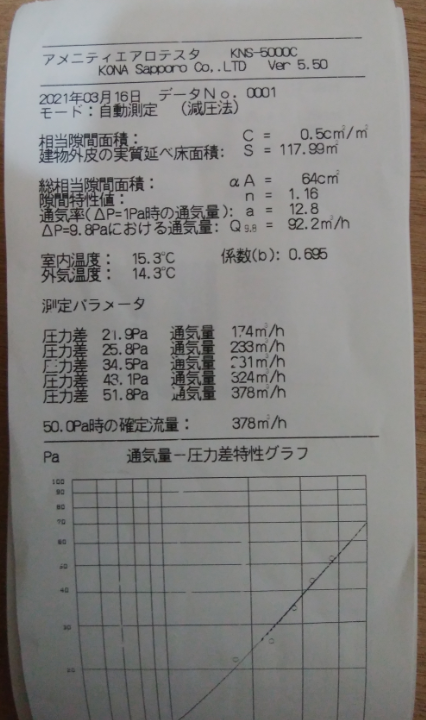 アメニティエアロテスタ KNS-5000C
KONA Sapporo Co,.LTD Ver 5.50
2021年03月16日 データNo. 0001
モード：自動測定 （減圧法）
相当隙間面積： C = 0.5c㎡/㎡
建物外皮の実質延べ床面積: S = 117.99㎡
総相当隙間面積： αA = 64c㎡
隙間特性値： n = 1.16
通気率(ΔP=1Pa時の通気量): a = 12.8
ΔP=9.8Paにおける通気量: Q9.8 = 92.2㎥/h
室内温度： 15.3℃ 係数(b): 0.695
外気温度： 14.3℃
測定パラメータ
圧力差 21.9Pa 通気量 174㎥/h
圧力差 25.8Pa 通気量 233㎥/h
圧力差 34.5Pa 通気量 31㎥/h
圧力差 43.1Pa 通気量 324㎥/h
圧力差 51.8Pa 通気量 378㎥/h
50.0Pa時の確定流量： 378㎥/h
Pa 通気量－圧力差特性グラフ
100
90
80
70
60
50
40
30
20